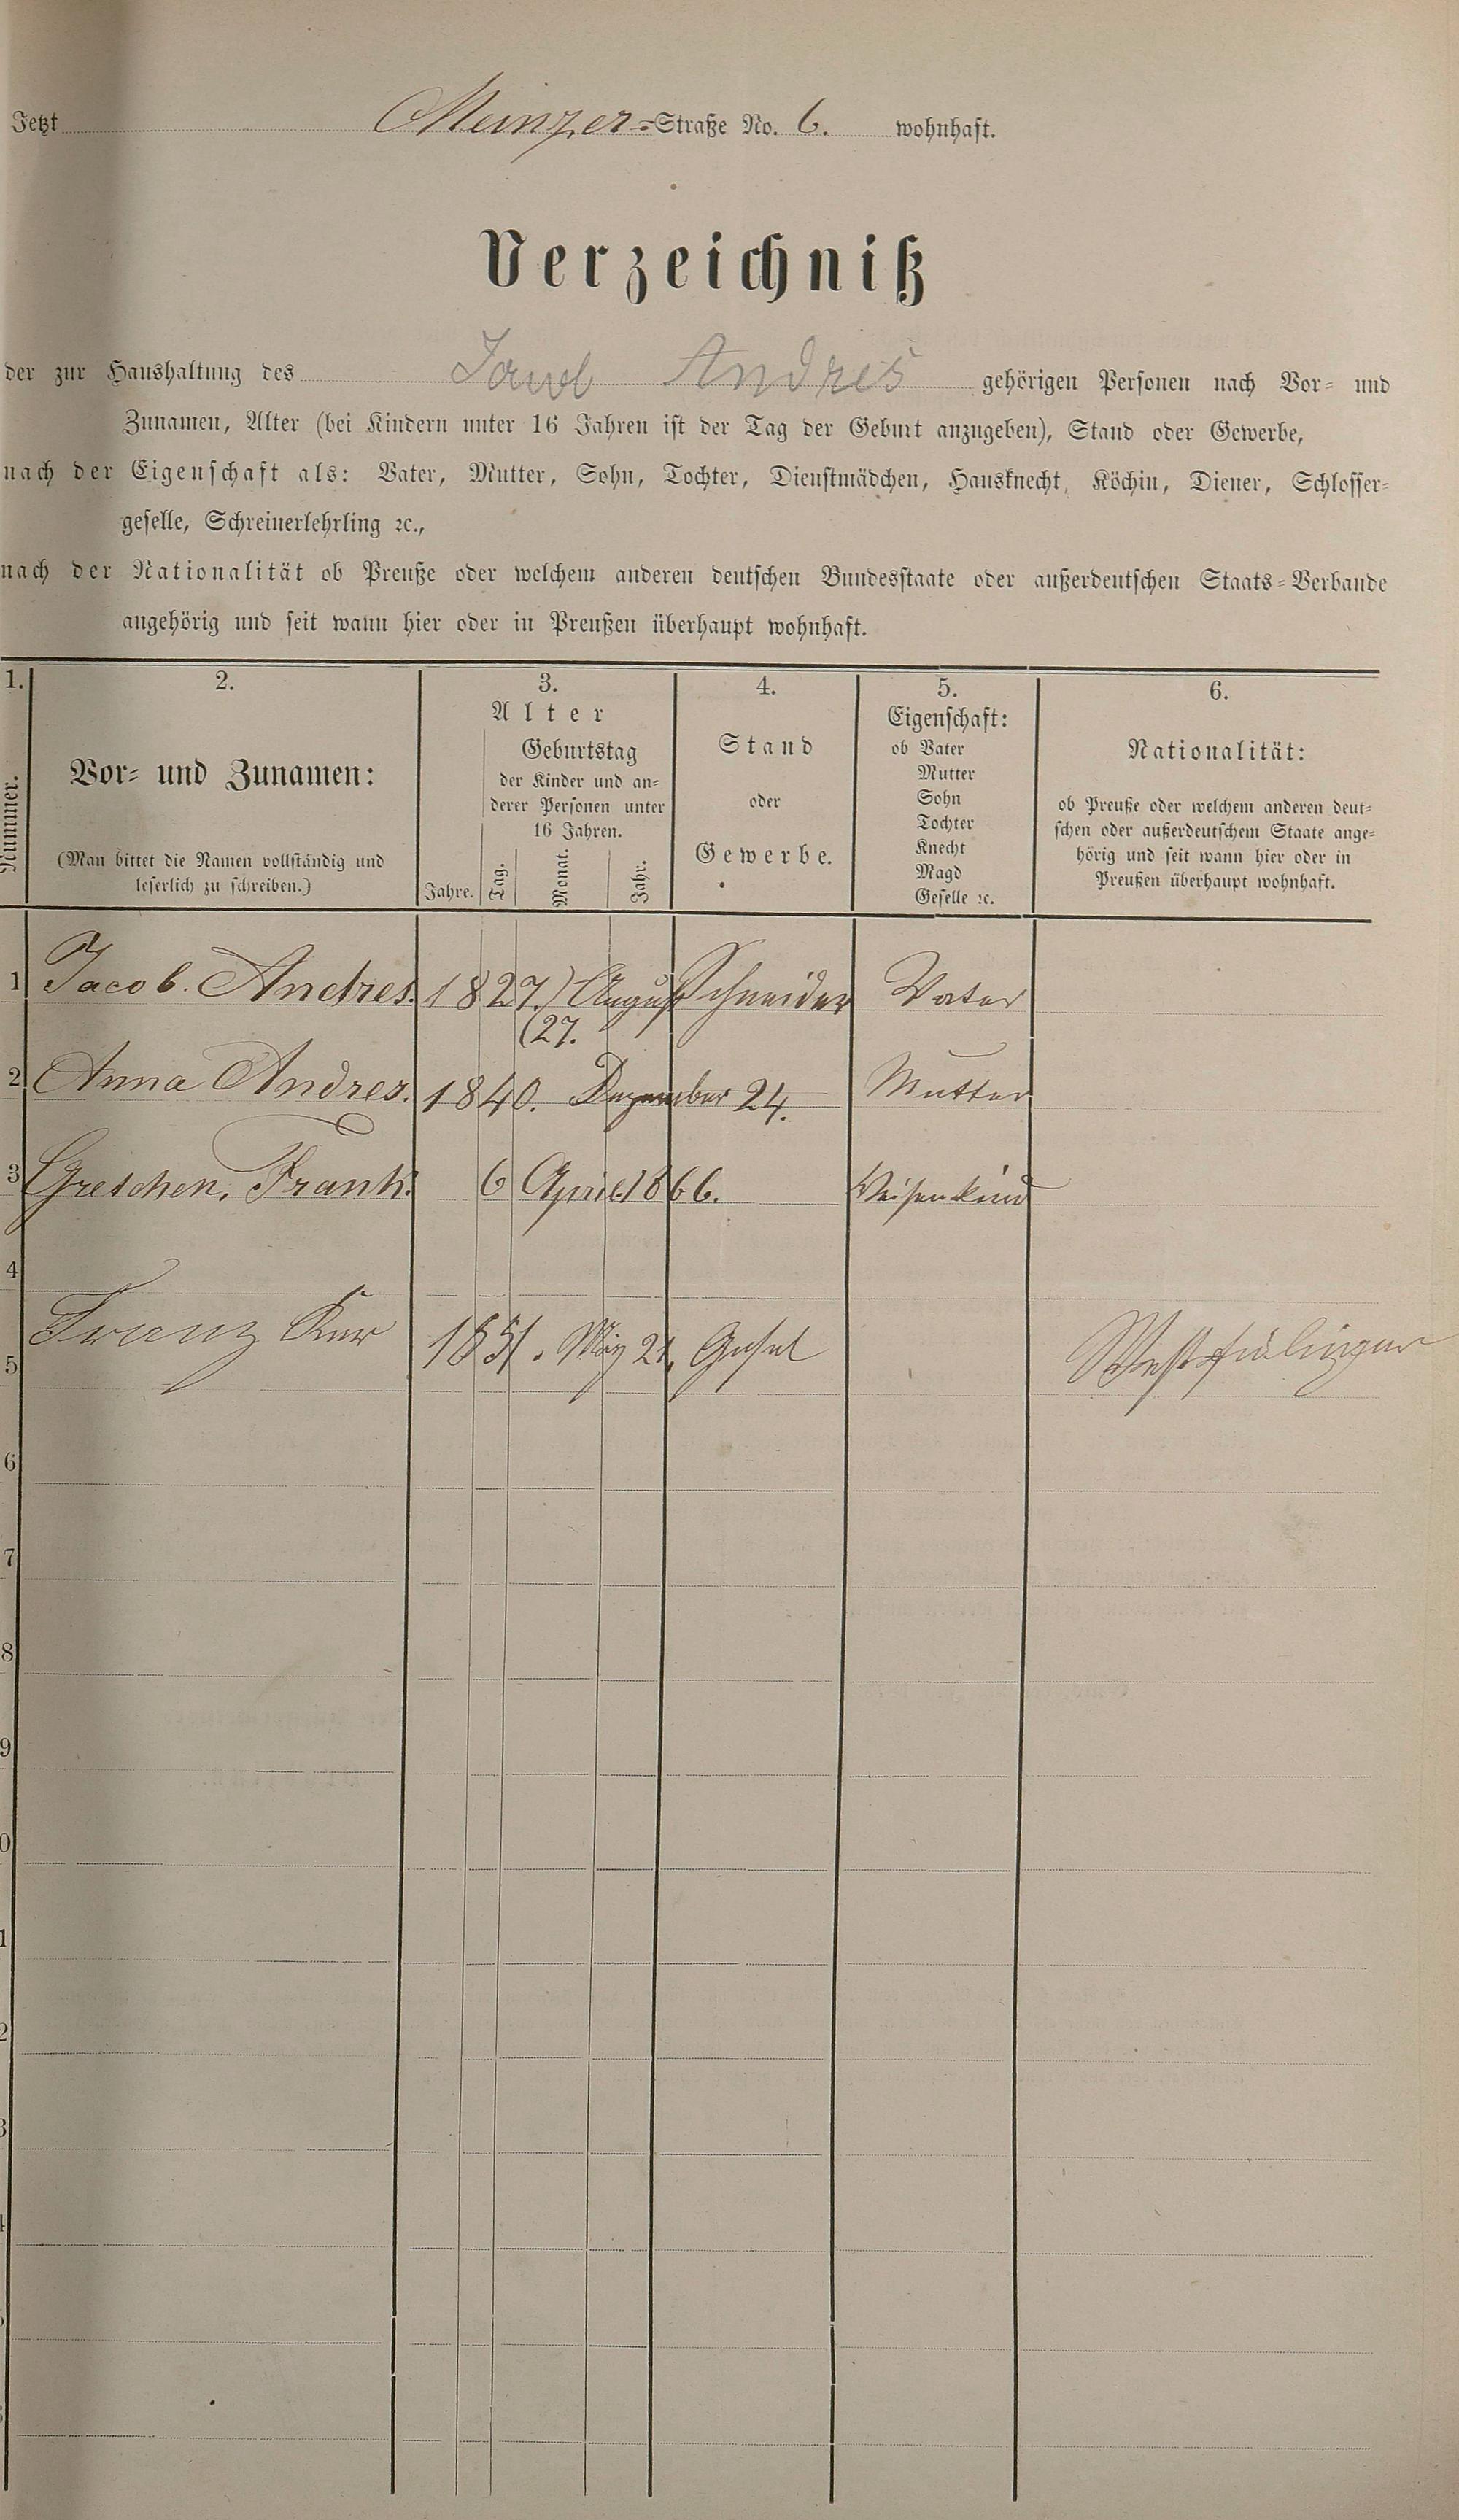 Jetzt Meinzer=Straße No. 6. wohnhaft.
Verzeichniß
der zur Haushaltung des Jacob Andres gehörigen Personen nach Vor= und
Zunamen, Alter (bei Kindern unter 16 Jahren ist der Tag der Geburt anzugeben), Stand oder Gewerbe,
nach der Eigenschaft als: Vater, Mutter, Sohn, Tochter, Dienstmädchen, Hausknecht, Köchin, Diener, Schlosser=
geselle, Schreinerlehrling ꝛc.,
nach der Nationalität ob Preuße oder welchem anderen deutschen Bundesstaate oder außerdeutschen Staats=Verbande
angehörig und seit wann hier oder in Preußen überhaupt wohnhaft.
1.
Nummer.
2.
Vor= und Zunamen:
(Man bittet die Namen vollständig und
leserlich zu schreiben.)
3.
Alter
Geburtstag
der Kinder und an=
derer Personen unter
16 Jahren.
Jahre. Tag. Monat. Jahr.
4.
Stand
oder
Gewerbe.
5.
Eigenschaft:
ob Vater
Mutter
Sohn
Tochter
Knecht
Magd
Geselle ꝛc.
6.
Nationalität:
ob Preuße oder welchem anderen deut=
schen oder außerdeutschem Staate ange=
hörig und seit wann hier oder in
Preußen überhaupt wohnhaft.
1 Jacob. Andres. 1827.) August Schneider Vater
(27.
2 Anna Andres. 1840. Dezember 24. Mutter
3 Gretchen, Frank. 6 April 1866. Waisenkind
4
Franz 1851. 21. Gesel
5
6
7
8
9
0
1
2
3
4